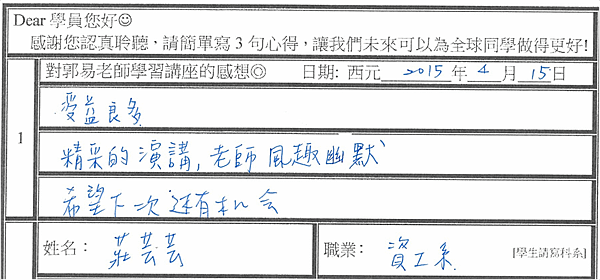 Dear 學員您好☺
感謝您認真聆聽，請簡單寫 3 句心得，讓我們未來可以為全球同學做得更好!
對郭易老師學習講座的感想◎ 日期: 西元 2015 年 4 月 15 日
1
受益良多
精采的演講，老師風趣幽默
希望下次还有机会
姓名： 莊芸芸 職業： 資工系 [學生請寫科系]